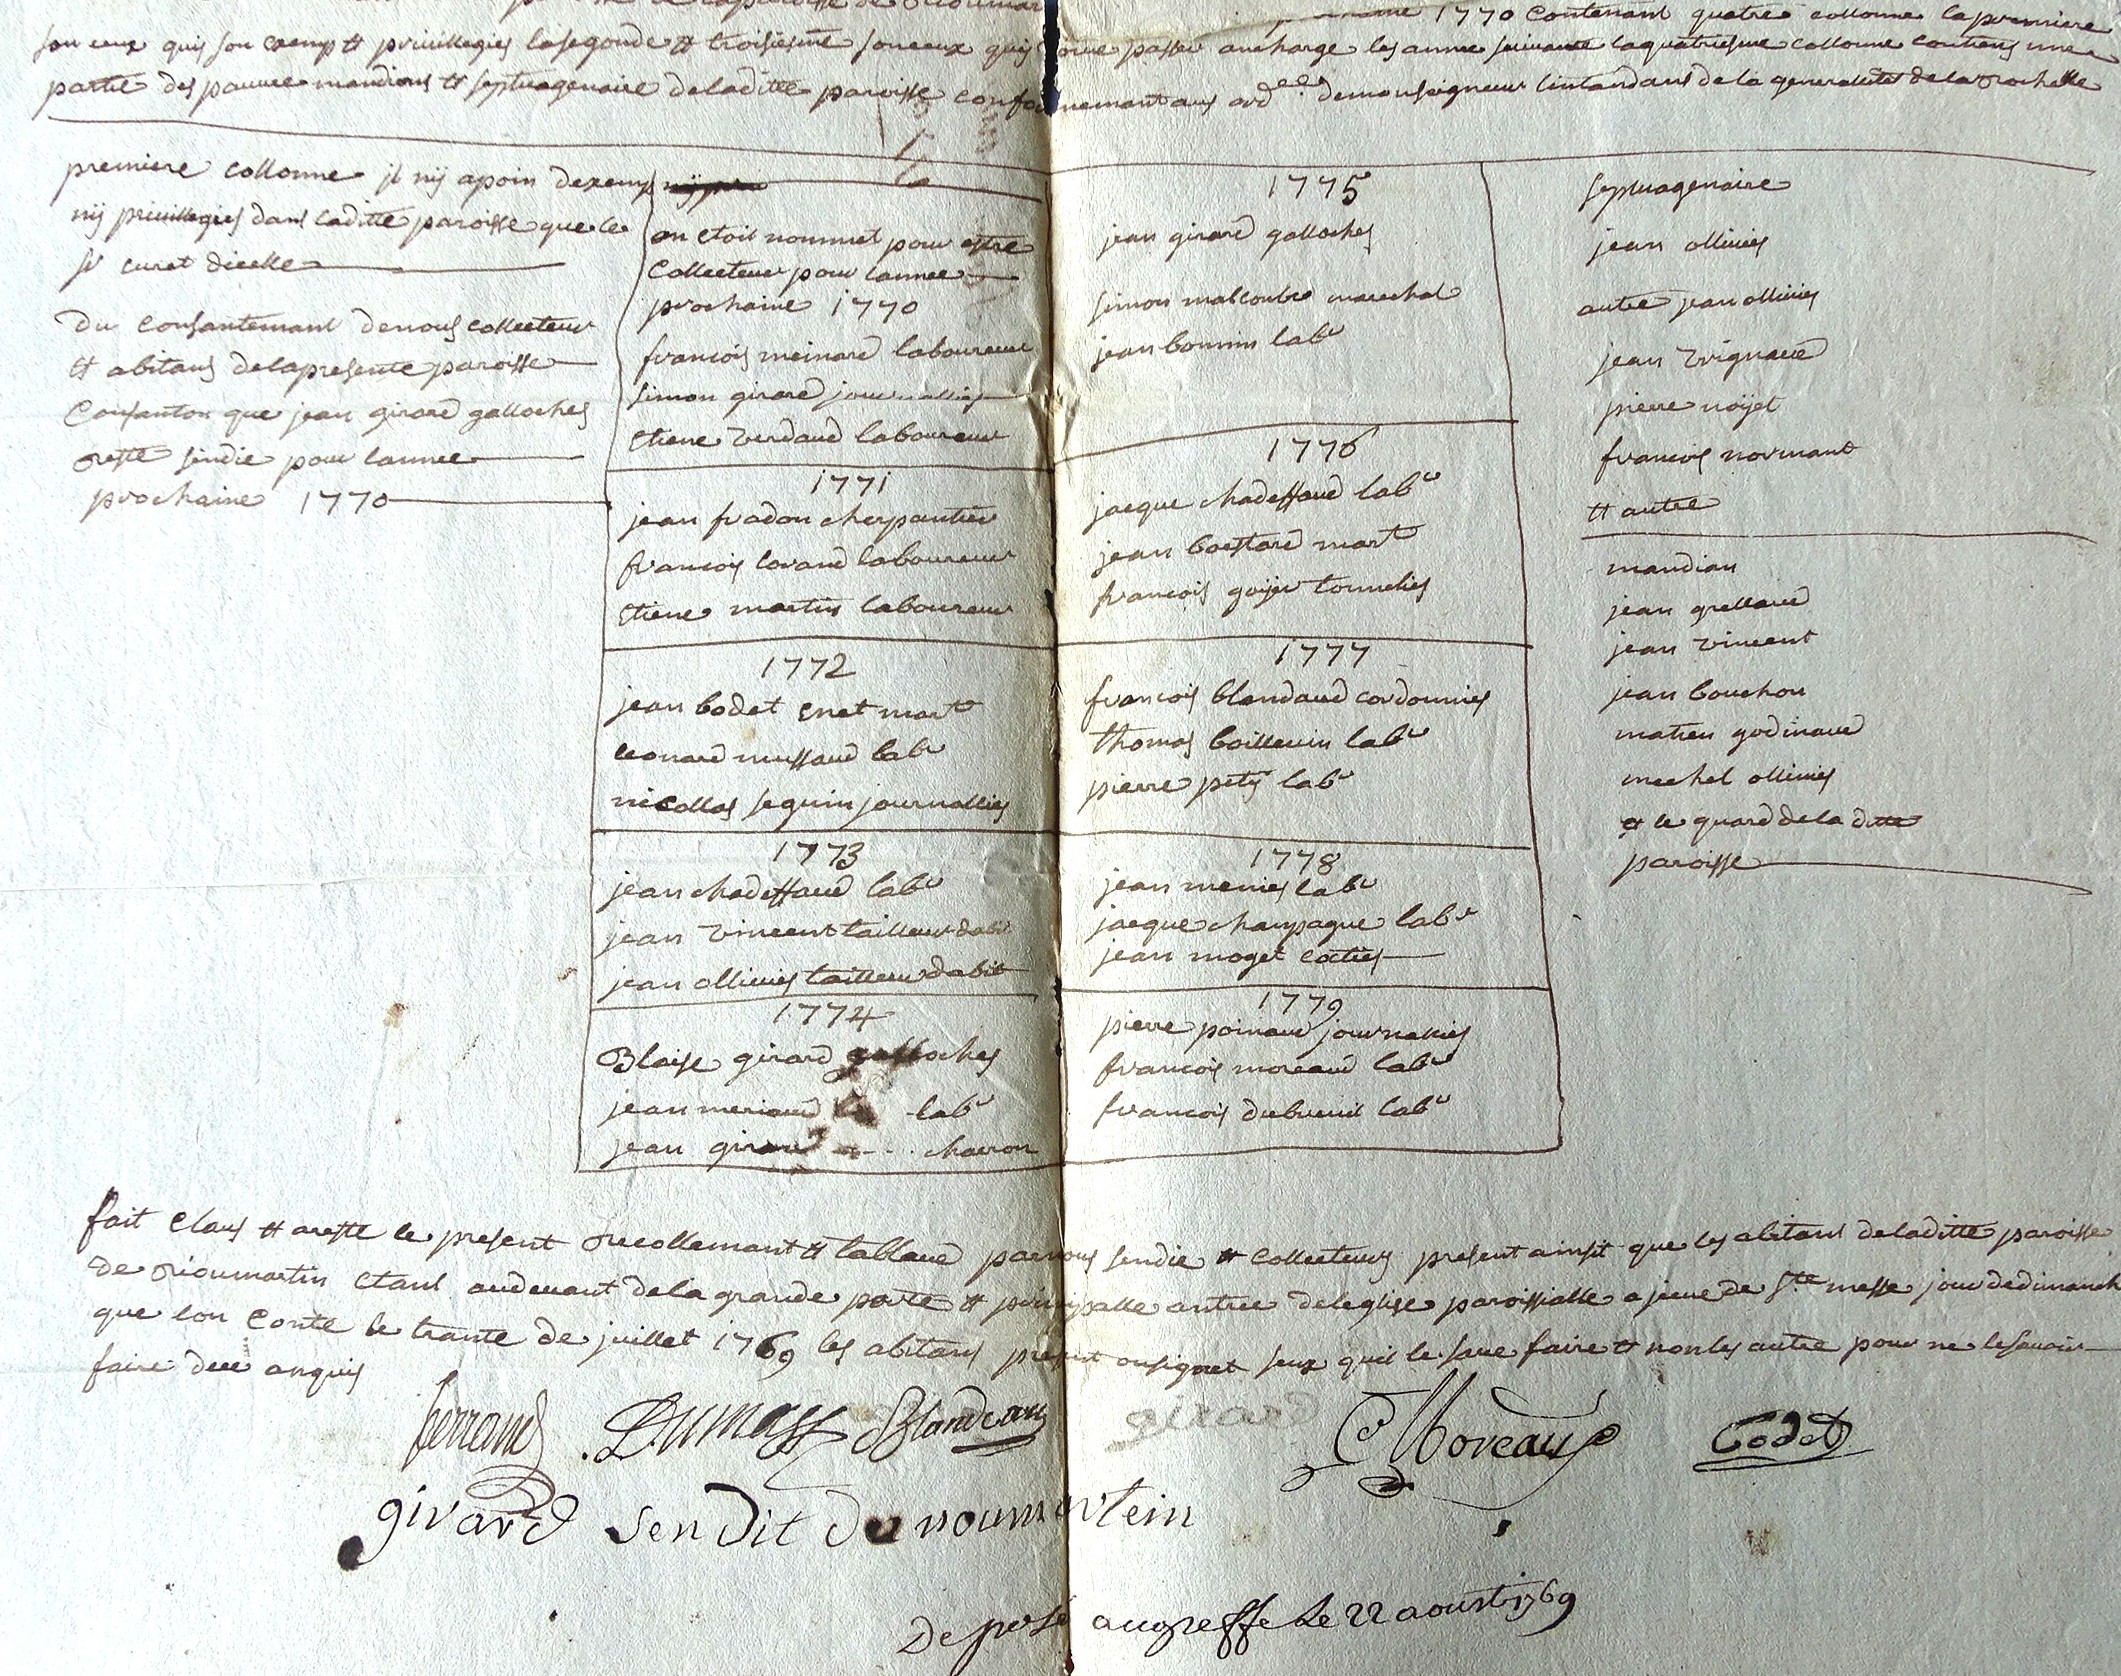 1770 Contenant quatre collonne la premiere
son ceux quis son exempt tt privillegies la segonde tt troisiesme son ceux quis doive passer an charge les anne suivante la quatriesme collonne contiens une
partie des pauvre mandians tt septuagenaire de laditte paroisse conformemant aux ord^ces de monseigneur lintandant de la generallitet de la rochelle
premiere collonne jl nij a poin dexemp
nij privillegies dans laditte paroisse que le
sr curet dicelle
du consantemant de nous collecteur
tt abitans de la presente paroisse
Consanton que jean girard galloches
reste sindic pour lannee
prochaine 1770
on etoit nommet pour estre
Collecteur pour lannee
prochaine 1770
francois meinard laboureur
simon girard journallies
etiene verdaud laboureur
1771
jean fradon cherpantier
francois lovaud laboureur
etiene martin laboureur
1772
jean bodet enet mart
leonard mussaud labr
nicollas seguin journallies
1773
jean chadeffaud labr
jean vincent tailleur dabit
jean ollivies tailleur dabit
1774
Blaise girard galloches
jean meriaud labr
jean girard charon
1775
jean girard galloches
simon malcoubre marechal
jean bounin labr
1776
jacque chadeffaud labr
jean boestard mart
francois goijer tonnelies
1777
francois blandaud cordonnies
thomas boilleuin labr
pierre petij labr
1778
jean menies labr
jacque champagne labr
jean moget
1779
pierre poinaud journallies
francois moreaud labr
francois dubreuil labr
septuagenaire
jean ollivies
autre jean ollivies
jean vrignaud
pierre noijet
francois normant
tt autre
mandian
jean grellaud
jean vincent
jean bouchon
matieu godinaud
mechel ollivies
et le quard de la ditte
paroisse
fait claus tt areste le present recollemant tt tablaud par nous sendic tt collecteurs present ainsit que les abitans de laditte paroisse
de rioumartin etant audevant de la grande porte tt principalle antree de leglise paroissialle a jseue de Ste messe jour de dimanch
que lon Conte le trante de juillet 1769 les abitans present onsignet seux quit le save faire tt non les autre pour ne le savoir
faire de ce anquis
ferrand Dumas Blandeau girard Moreau Codet
girard sendit de rioumartein
Deposé au greffe le 22 aoust 1769